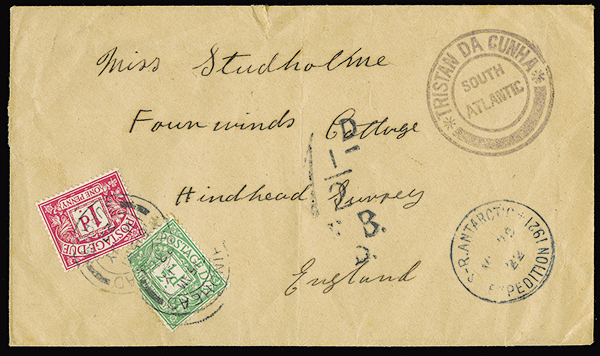 Miss Studholme
Fourwinds Cottage
Hindhead Surrey
England
TRISTAN DA CUNHA
SOUTH
ATLANTIC
S.R. ANTARCTIC EXPEDITION 1921
22
D
B.
POSTAGE DUE
1d
ONE PENNY
POSTAGE DUE
½d